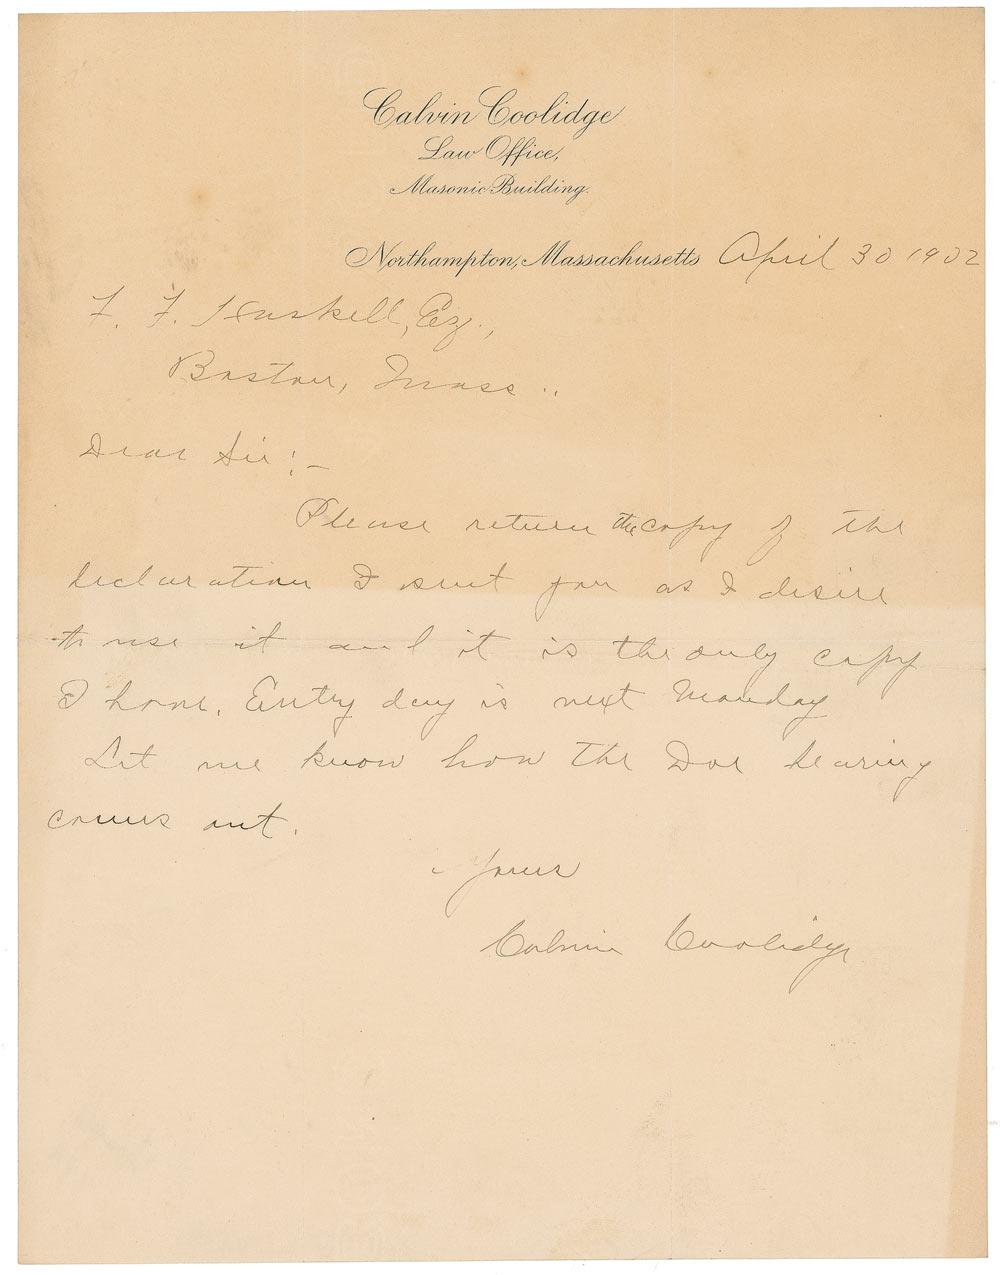 Calvin Coolidge
Law Office,
Masonic Building.
Northampton, Massachusetts April 30 1902
F. F. Haskell, Esq.,
Boston, Mass..
Dear Sir:-
Please return the copy of the
declaration I sent you as I desire
to use it and it is the only copy
I have. Entry day is next Monday
Let me know how the Doe hearing
comes out.
Yours
Calvin Coolidge